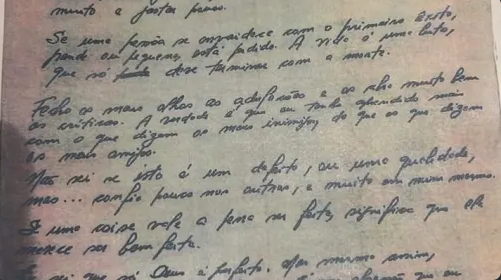 muito a gastar pouco.
Se uma pessoa se envaidece com o primeiro êxito,
grande ou pequeno, está perdido. A vida é uma luta,
que só deve terminar com a morte.
Fecho os meus olhos às adulações e os abro muito bem
às críticas. A verdade é que eu tenho aprendido mais
com o que dizem os meus inimigos, do que os que dizem
os meus amigos.
Não sei se isto é um defeito, ou uma qualidade,
mas... confio pouco nos outros, e muito em mim mesmo.
Se uma coisa vale a pena ser feita, significa que ela
merece ser bem feita.
sei que só Deus é perfeito. Mas mesmo assim,
que eu